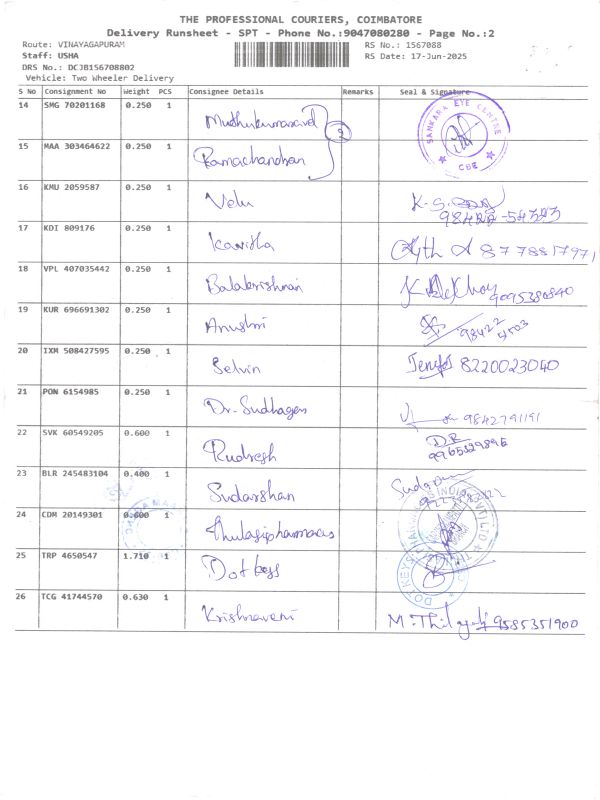 THE PROFESSIONAL COURIERS, COIMBATORE
Delivery Runsheet - SPT - Phone No.:9047080280 - Page No.:2
Route: VINAYAGAPURAM RS No.: 1567088
Staff: USHA RS Date: 17-Jun-2025
DRS No.: DCJB156708802
Vehicle: Two Wheeler Delivery
S No Consignment No Weight PCS Consignee Details Remarks Seal & Signature
14 SMG 70201168 0.250 1 Muthukumarasamy 2 SANKARA EYE CENTRE CBE
15 MAA 303464622 0.250 1 Ramachandran
16 KMU 2059587 0.250 1 Velu
17 KDI 809176 0.250 1 Kavitha 8778817971
18 VPL 407035442 0.250 1 Balakrishnan 9095380840
19 KUR 696691302 0.250 1 98422
20 IXM 508427595 0.250 1 Selvin 8220023040
21 PON 6154985 0.250 1 Dr. 9842791191
22 SVK 60549205 0.600 1 Rudresh
23 BLR 245483104 0.400 1 Sudarshan
24 CDM 20149301 0.600 1
25 TRP 4650547 1.710 1
26 TCG 41744570 0.630 1 Krishnaveni 9585351900